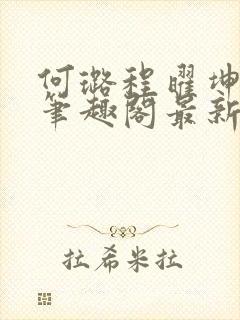 何璐程曜坤
笔趣阁最新
拉希米拉